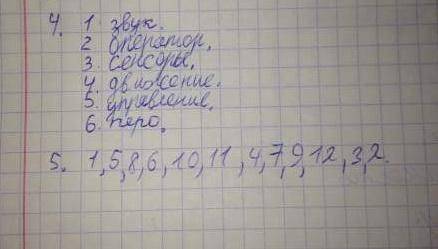 4. 1 звук.
2 оператор.
3. сенсоры.
4. движение.
5. управление.
6. перо.
5. 1, 5, 8, 6, 10, 11, 4, 7, 9, 12, 3, 2.